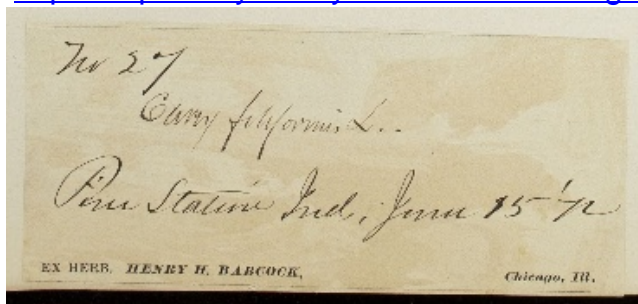 No 27
Carex filiformis L.
Pine Station Ind, June 15 '72
EX HERB. HENRY H. BABCOCK, Chicago, Ill.